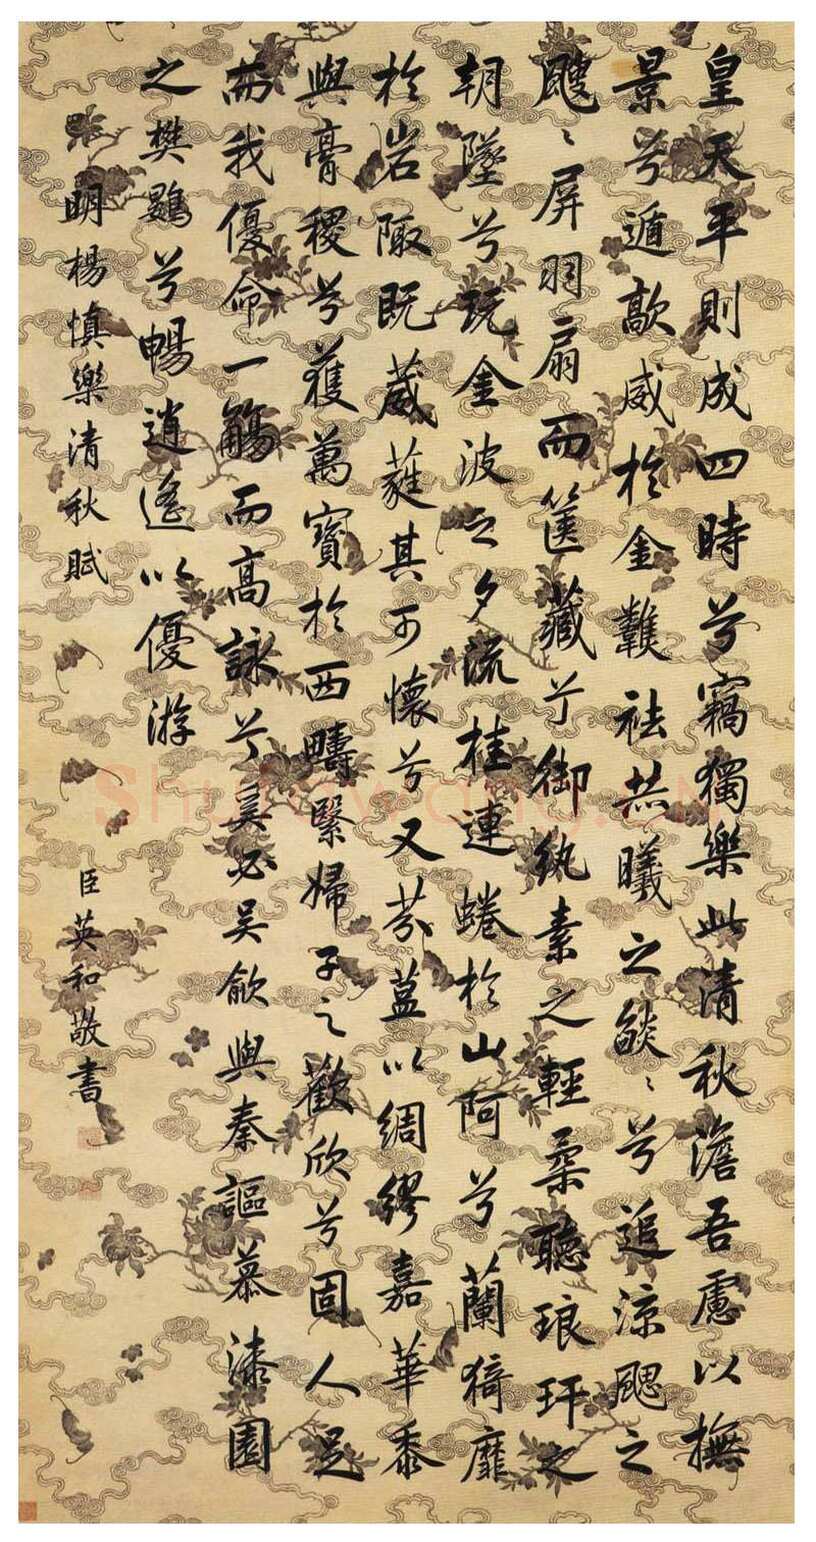 皇天平則成四時兮竊獨樂此清秋澹吾慮以撫
景兮遁歊威於金虈祛炎曦之燄〻兮追涼颸之
颼〻屏羽扇而篋藏兮御紈素之輕柔聽琅玕之
朝墜兮玩金波之夕流桂連蜷於山阿兮蘭猗靡
於岩陬既葳蕤其可懷兮又芬蒀以綢繆嘉華黍
與膏稷兮獲萬寶於西疇繄婦子之歡欣兮固人足
而我優命一觴而高詠兮奚必吴歈與秦謳慕漆園
之樊鷃兮暢逍遙以優游
明楊慎樂清秋賦
臣英和敬書
Shufawang.CN